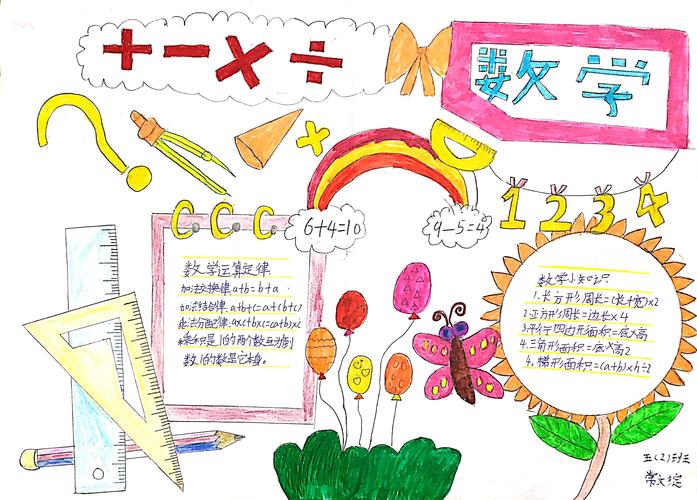 + − × ÷
数学
6+4=10
9-5=4
1 2 3 4
数学运算定律
加法交换律:a+b=b+a
加法结合律:a+b+c=a+(b+c)
乘法分配律:axc+bxc=(a+b)xc
*乘积是1的两个数互为倒
数,1的数是它本身。
数学小知识
1.长方形周长=(长+宽)×2
2.正方形周长=边长×4
3.平行四边形面积=底×高
4.三角形面积=底×高2
4.梯形面积=(a+b)×h÷2
五(2)班
常文绽